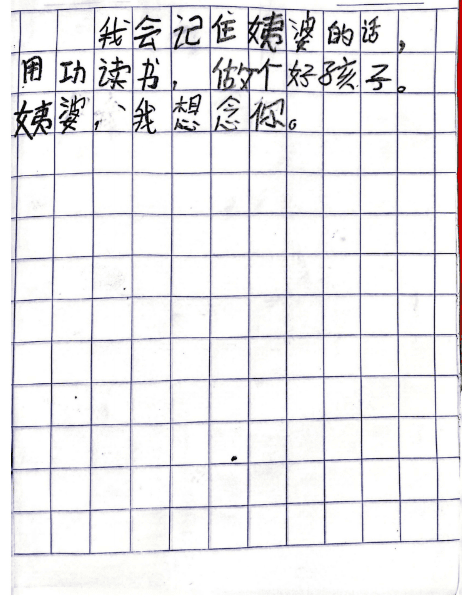 我会记住姨婆的话，
用功读书，做个好孩子。
姨婆，我想念你。